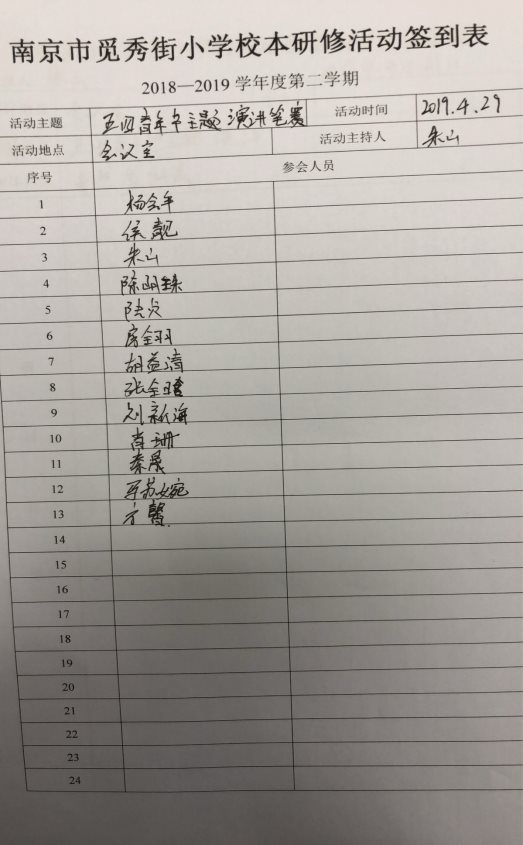 南京市觅秀街小学校本研修活动签到表
2018—2019 学年度第二学期
活动主题 五四青年节主题演讲竞赛 活动时间 2019.4.29
活动地点 会议室 活动主持人 朱山
序号 参会人员
1 杨会午
2 侯靓
3 朱山
4 陈明
5
6 房全羽
7 胡益清
8 张全
9 刘新海
10 肖珊
11 秦晟
12 苏婉
13 方馨
14
15
16
17
18
19
20
21
22
23
24